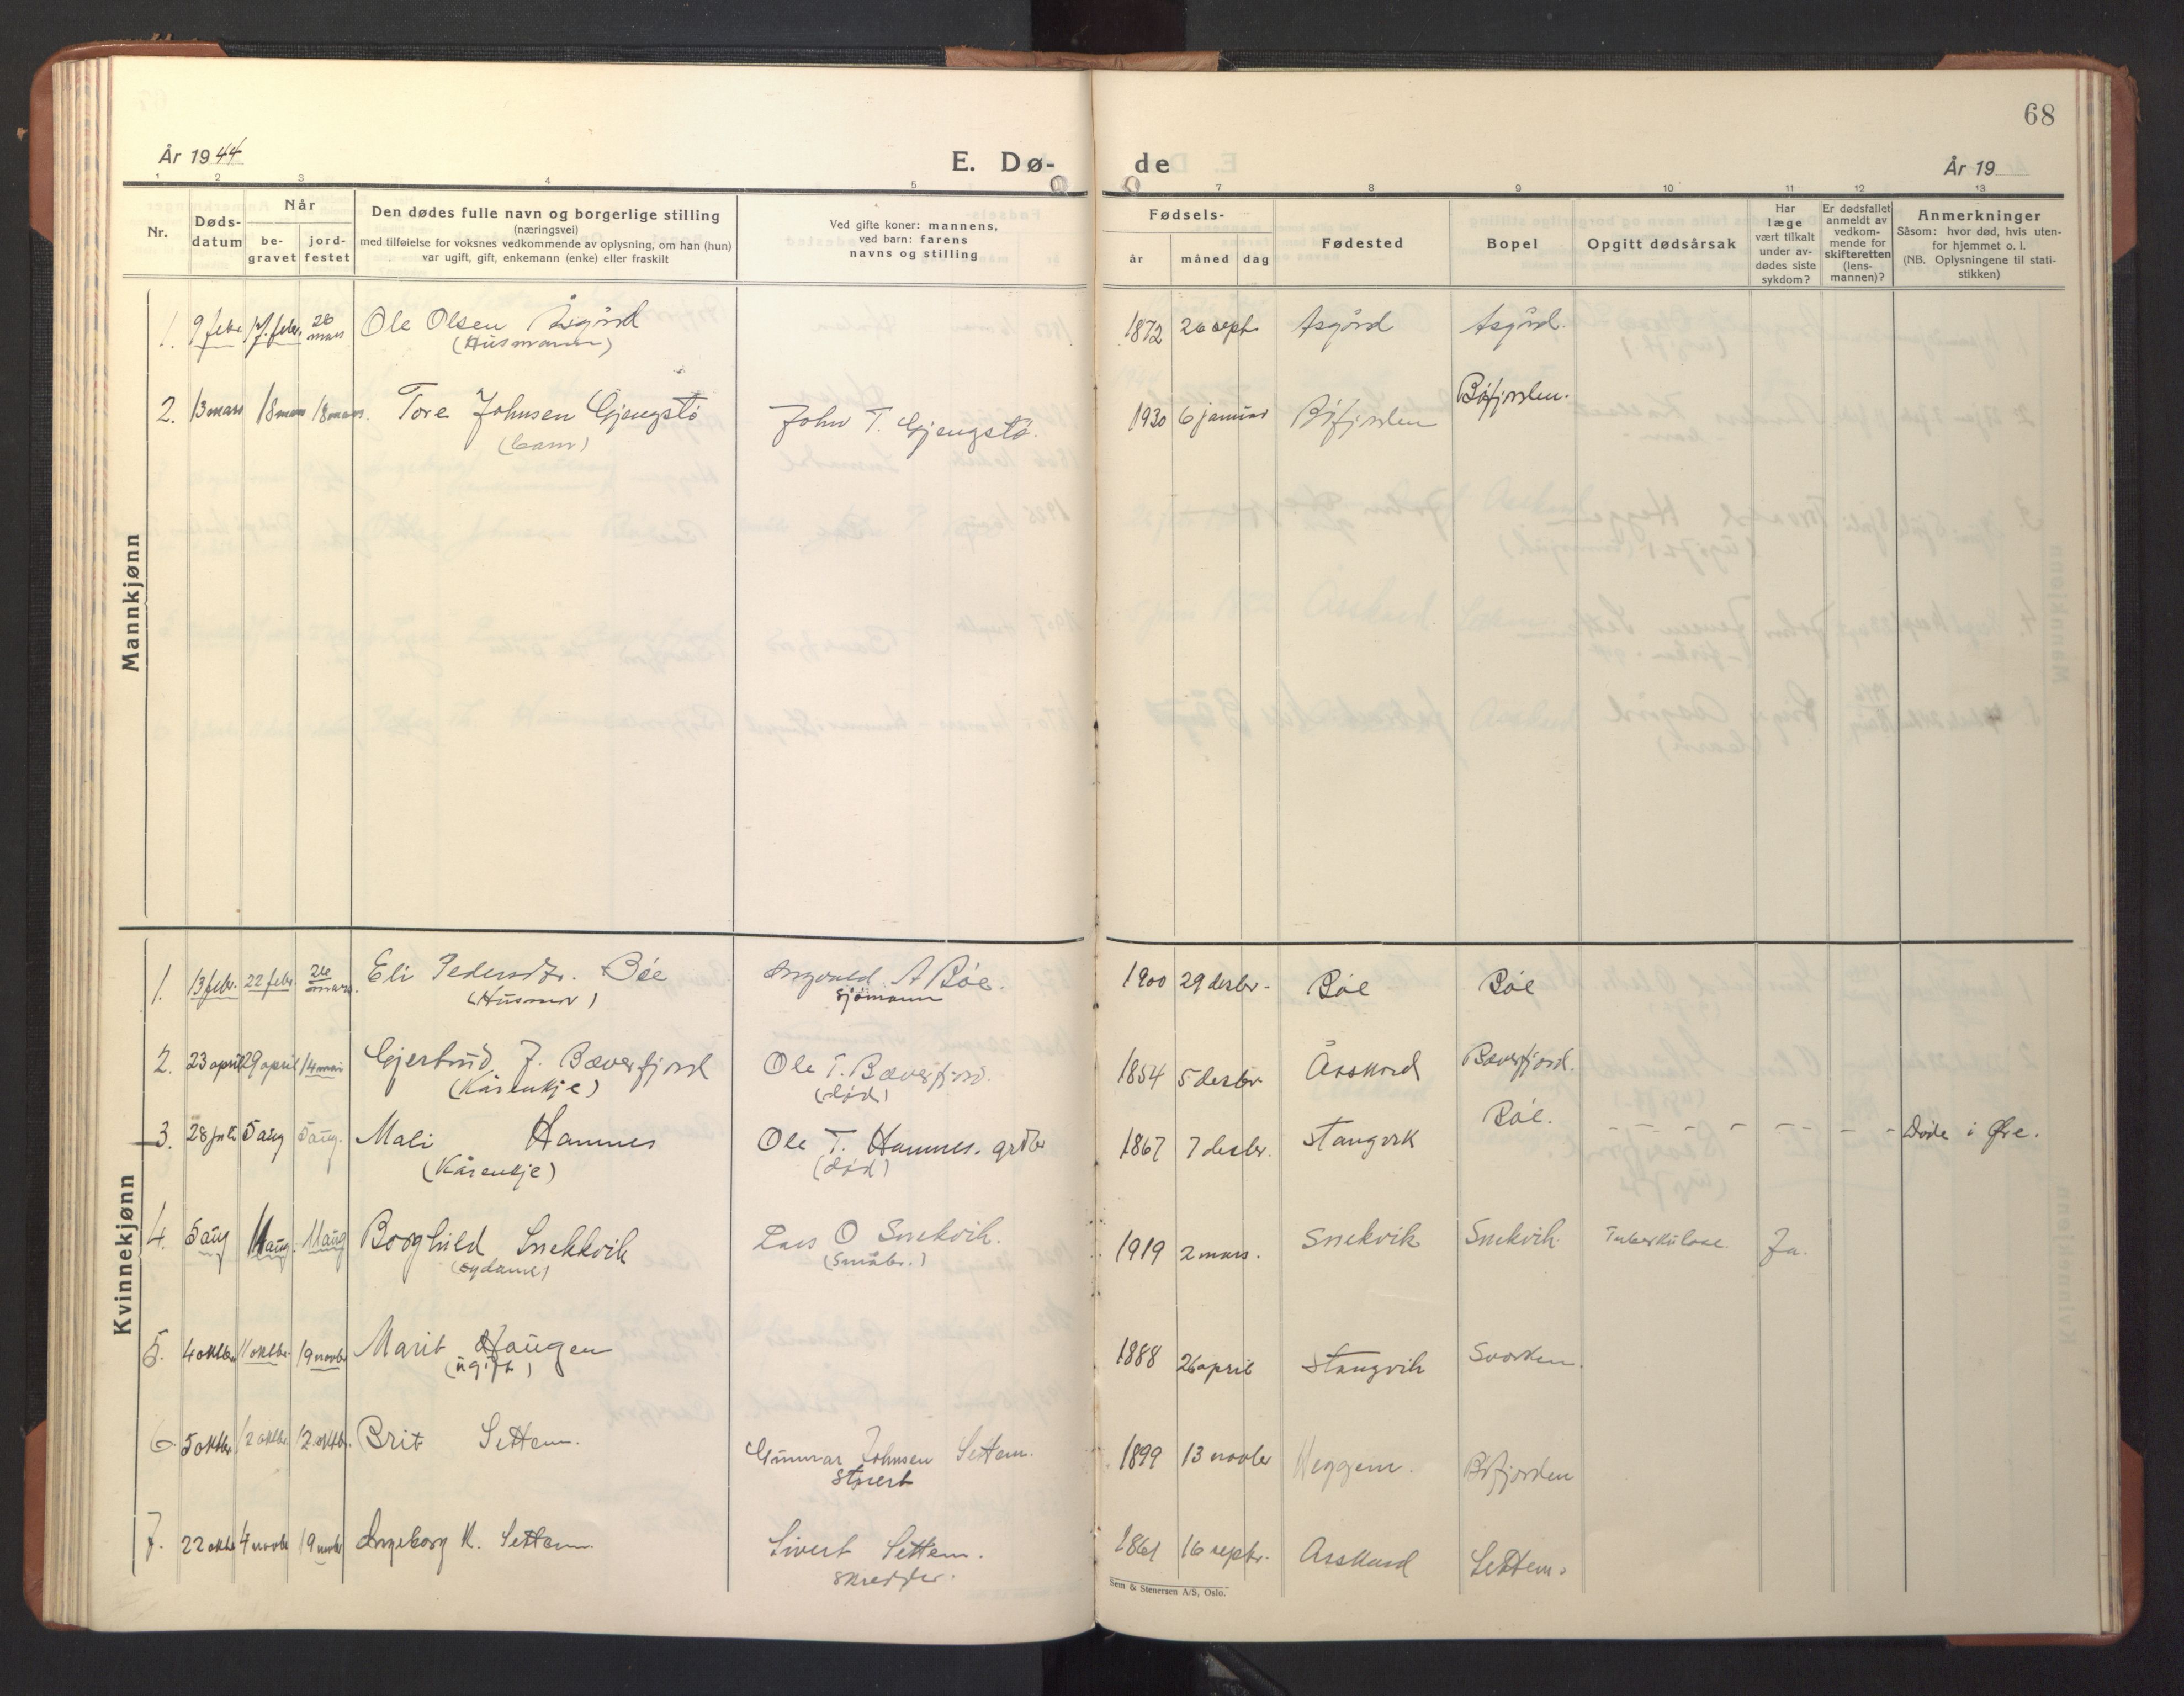 68
År 1944
E. Dø-
de
År 19
1 2 3 4 5
7 8 9 10 11 12 13
Nr.
Døds-
datum
Når
be-
gravet
jord-
festet
Den dødes fulle navn og borgerlige stilling
(næringsvei)
med tilføielse for voksnes vedkommende av oplysning, om han (hun)
var ugift, gift, enkemann (enke) eller fraskilt
Ved gifte koner: mannens,
ved barn: farens
navns og stilling
Fødsels-
år måned dag
Fødested
Bopel
Opgitt dødsårsak
Har
læge
vært tilkalt
under av-
dødes siste
sykdom?
Er dødsfallet
anmeldt av
vedkom-
mende for
skifteretten
(lens-
mannen)?
Anmerkninger
Såsom: hvor død, hvis uten-
for hjemmet o. l.
(NB. Oplysningene til stati-
stikken)
Mannkjønn
1. 9 febr 17. febr. 28 mars Ole Olsen Åsgård 1872 26 sept Åsgård Åsgård.
(Husmann)
2. 13 mars 18 mars 18 mars. Tore Johnsen Gjengstø John T. Gjengstø. 1930 6 januar Bøfjorden Bøfjorden.
(barn)
Kvinnekjønn
1. 13 febr. 22 febr. 26 mars. Eli Pedersdtr. Bøe Ingvald A Bøe. 1900 29 desbr. Bøe Bøe
(Husmor) sjømann
2. 23 april 29 april 14 mai Gjertrud J. Bæverfjord Ole T. Bæverfjord. 1854 5 desbr. Åsskard Bæverfjord.
(Kårenkje) (død)
3. 28 juli 5 aug 5 aug. Mali Hamnes Ole T. Hamnes. grdbr 1867 7 desbr. Stangvik Bøe. - - - - - - - - Døde i Øre.
(Kårenkje) (død)
4. 5 aug 11 aug. 11 aug Borghild Snekkvik Lars O Snekvik. 1919 2 mars. Snekvik Snekvik Tuberkulose. Ja.
(sydame) (småbr.)
5. 4 oktbr 11 oktbr. 19 novbr Marit Haugen 1888 26 april Stangvik
(ugift)
6. 5 oktbr 12 oktbr. 12 oktbr. Brit Settem. Gunnar Johnsen Settem. 1899 13 novbr Heggem. Bøfjorden
Stuert
7. 22 oktbr 4 novbr 19 novbr Ingeborg K. Settem. Sivert Settem. 1861 16 septr. Åsskard Settem.
skredder.
Sem & Stenersen A/S, Oslo.